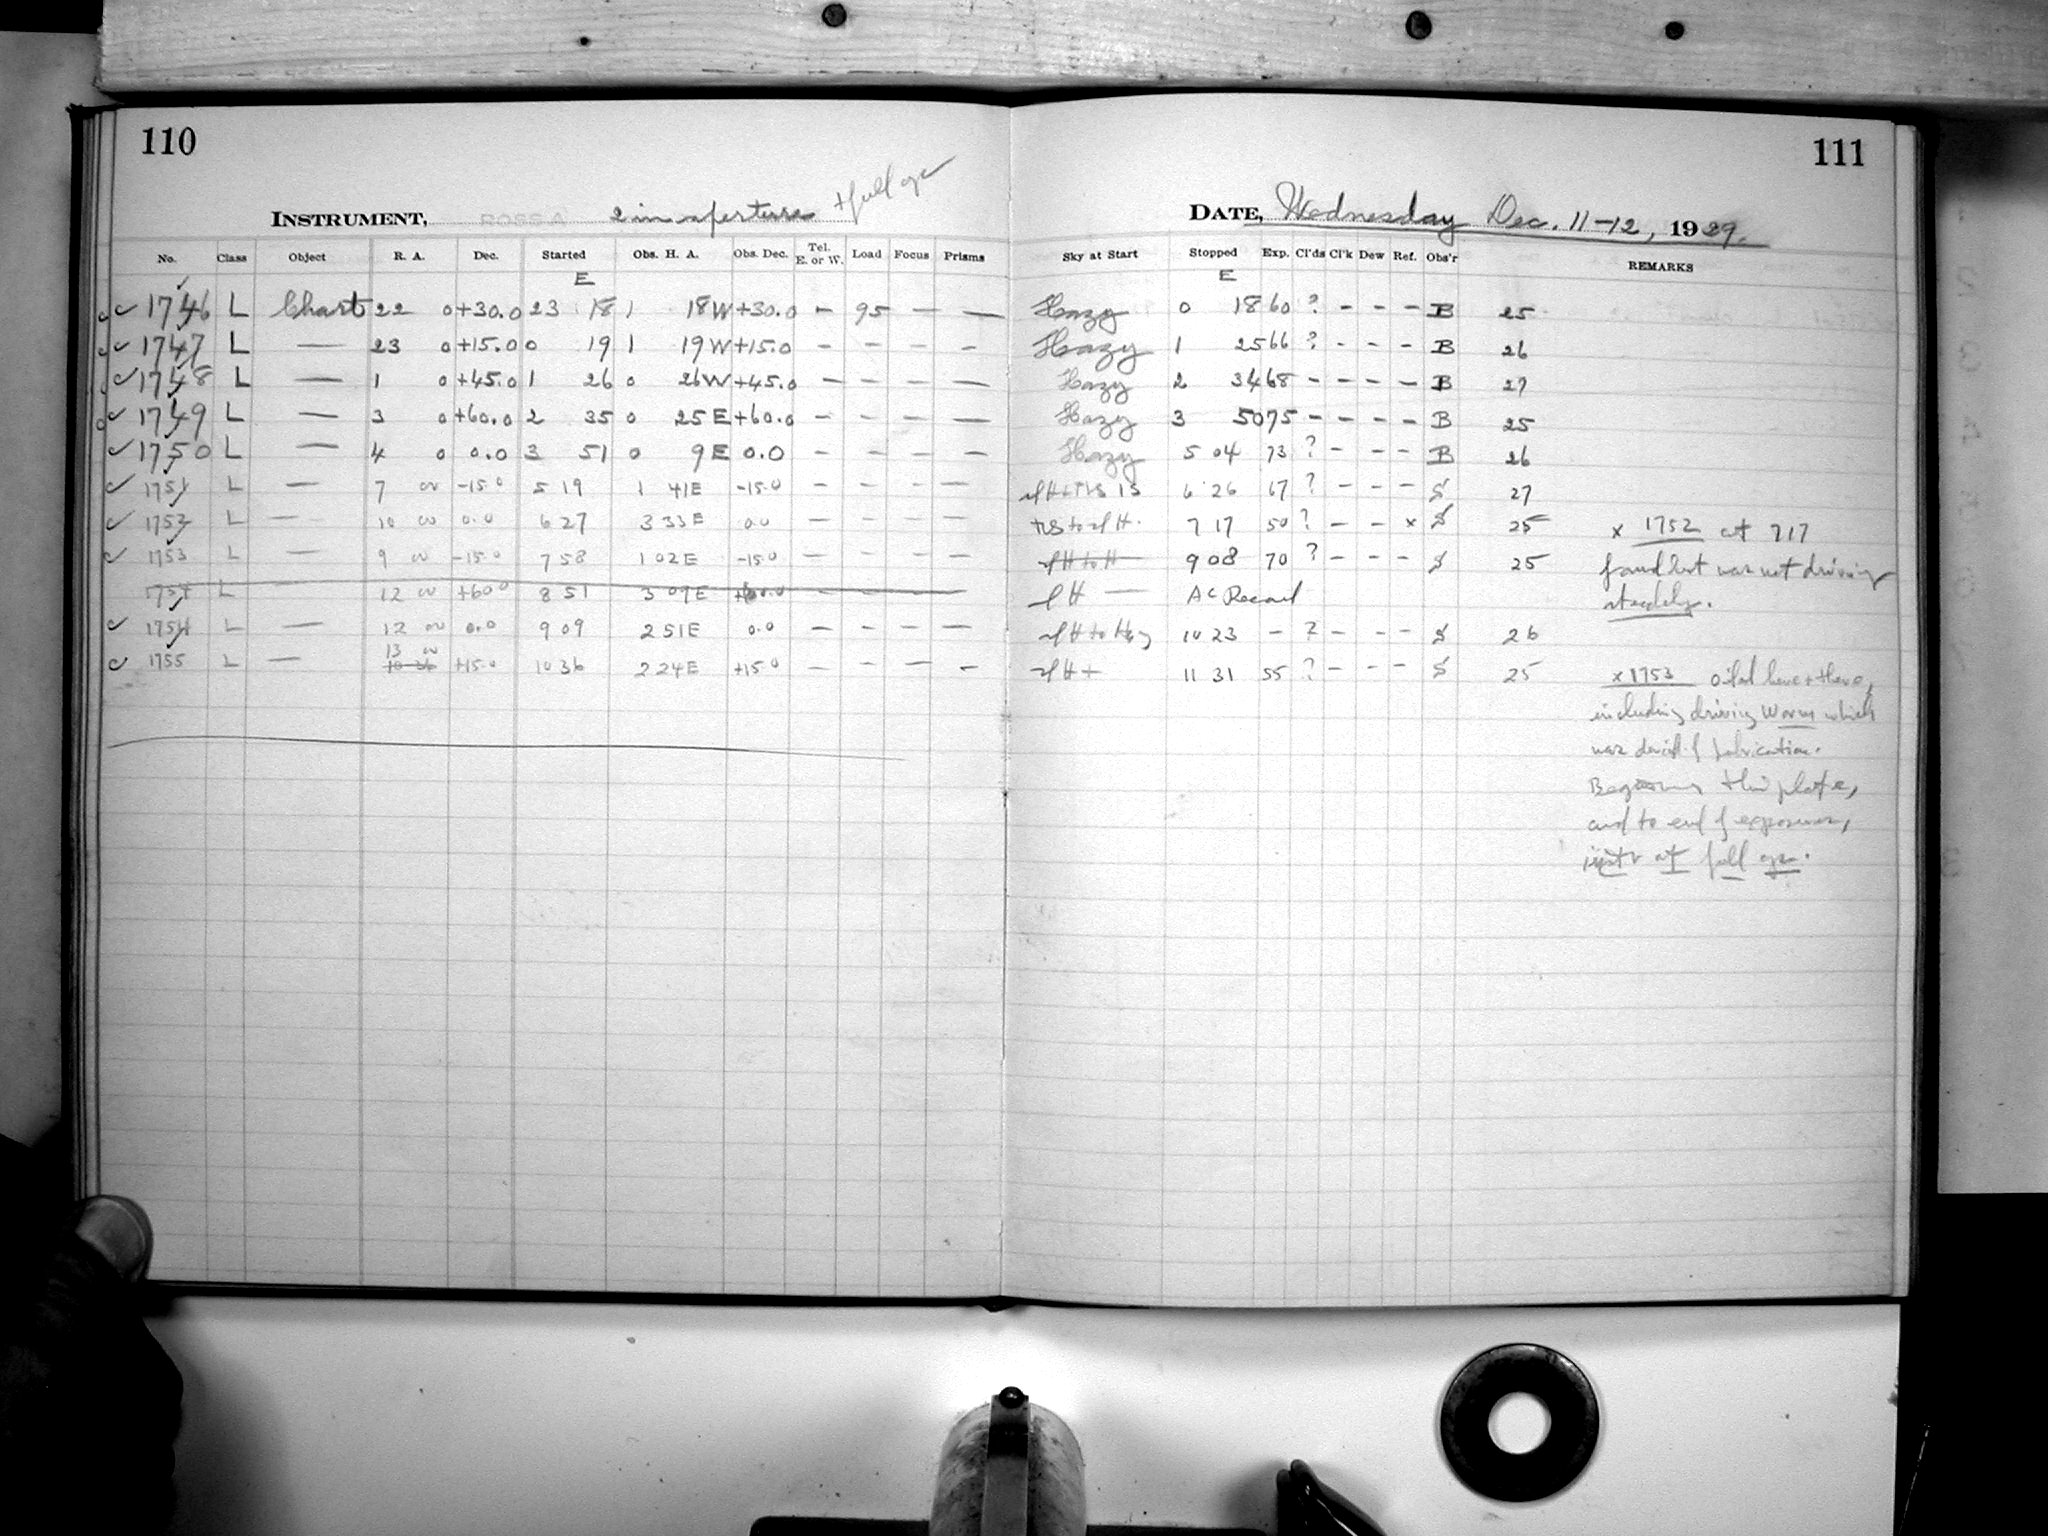 110
111
INSTRUMENT, ROSS A 2 in aperture + full ap
DATE, Wednesday Dec. 11-12, 1929.
No. Class Object R. A. Dec. Started Obs. H. A. Obs. Dec. Tel. E. or W. Load Focus Prisms Sky at Start Stopped Exp. Cl'ds Cl'k Dew Ref. Obs'r REMARKS
E E
1746 L Chart 22 0 +30.0 23 18 1 18W +30.0 - 95 - - Hazy 0 18 60 ? - - - B 25
1747 L - 23 0 +15.0 0 19 1 19W +15.0 - - - - Hazy 1 25 66 ? - - - B 26
1748 L - 1 0 +45.0 1 26 0 26W +45.0 - - - - Hazy 2 34 68 - - - - B 27
1749 L - 3 0 +60.0 2 35 0 25E +60.0 - - - - Hazy 3 50 75 - - - - B 25
1750 L - 4 0 0.0 3 51 0 9E 0.0 - - - - Hazy 5 04 73 ? - - - B 26
1751 L - 7 00 -15.0 5 19 1 41E -15.0 - - - - 6 26 67 ? - - - S 27
1752 L - 10 00 0.0 6 27 3 33E 0.0 - - - - 7 17 50 ? - - x S 25 x 1752 at 7 17
1753 L - 9 00 -15.0 7 58 1 02E -15.0 - - - - 9 08 70 ? - - - S 25 found that was not driving
1754 L - 12 00 +60.0 8 51 3 09E +60.0 H - AC Record steadily.
1754 L - 12 00 0.0 9 09 2 51E 0.0 - - - - 10 23 - ? - - - S 26
13 00
1755 L - +15.0 10 36 2 24E +15.0 - - - - 11 31 55 ? - - - S 25 x 1753 oiled here + there,
including driving worm which
was devoid of lubrication.
Beginning this plate,
and to end of exposures,
at full ap.